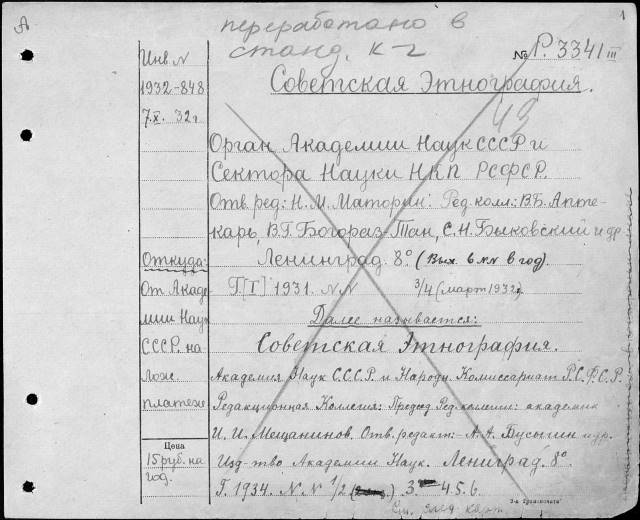 А
1
переработано в
станд. к-г
№ Р. 3341 III
Инв. N
1932-848
7.X. 32 г
Советская Этнография.
43
Орган Академии Наук СССР и
Сектора Науки НКП РСФСР.
Отв. ред: Н. М. Маторин. Ред. колл.: В.Б. Апте-
карь, В.Г. Богораз-Тан, С.Н. Быковский и др
Откуда:
Ленинград. 8° (Вых. 6 № № в год).
От Акаде
Г. [I] 1931. N.N 3/4 (март 1932 г.)
мии Наук
Далее называется:
СССР. на
Советская Этнография.
лож.
Академия Наук С.С.С.Р. и Народн. Комиссариат Р.С.Ф.С.Р.
платеж
Редакционная Коллегия: Председ. Ред. коллегии: академик
И. И. Мещанинов. Отв. редакт:- А. А. Бусыгин и др.
Цена
15 руб. на
год.
Изд-тво Академии Наук. Ленинград. 8°
Г. 1934. N. N 1/2 3. 4. 5. 6.
См. след. карт.